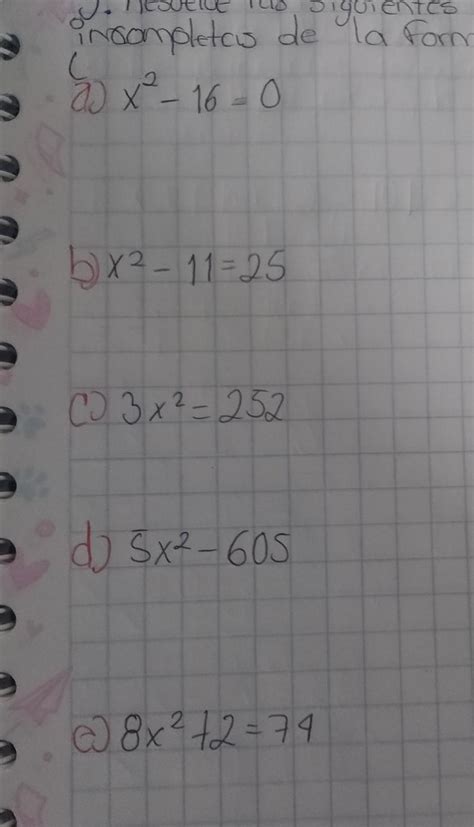 Resuelve las siguientes
incompletas de la form
a) x² - 16 = 0
b) x² - 11 = 25
c) 3x² = 252
d) 5x² - 605
e) 8x² + 2 = 74